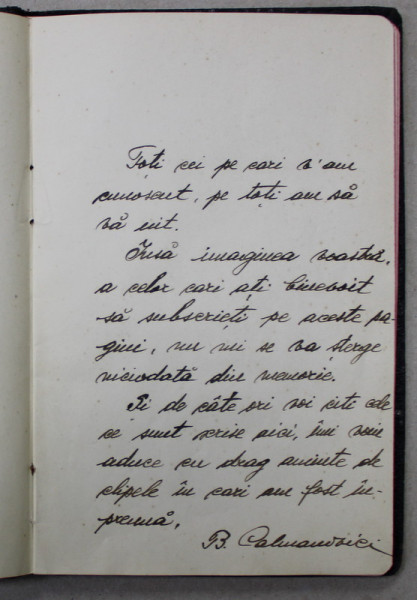 Toți cei pe cari v'am
cunoscut, pe toți am să
vă uit.
Însă imaginea voastră,
a celor cari ați binevoit
să subscrieți pe aceste pa-
gini, nu mi se va șterge
niciodată din memorie.
Și de câte ori voi citi cele
ce sunt scrise aici, îmi voiu
aduce cu drag aminte de
clipele în cari am fost în-
preună.
B. Calmanovici